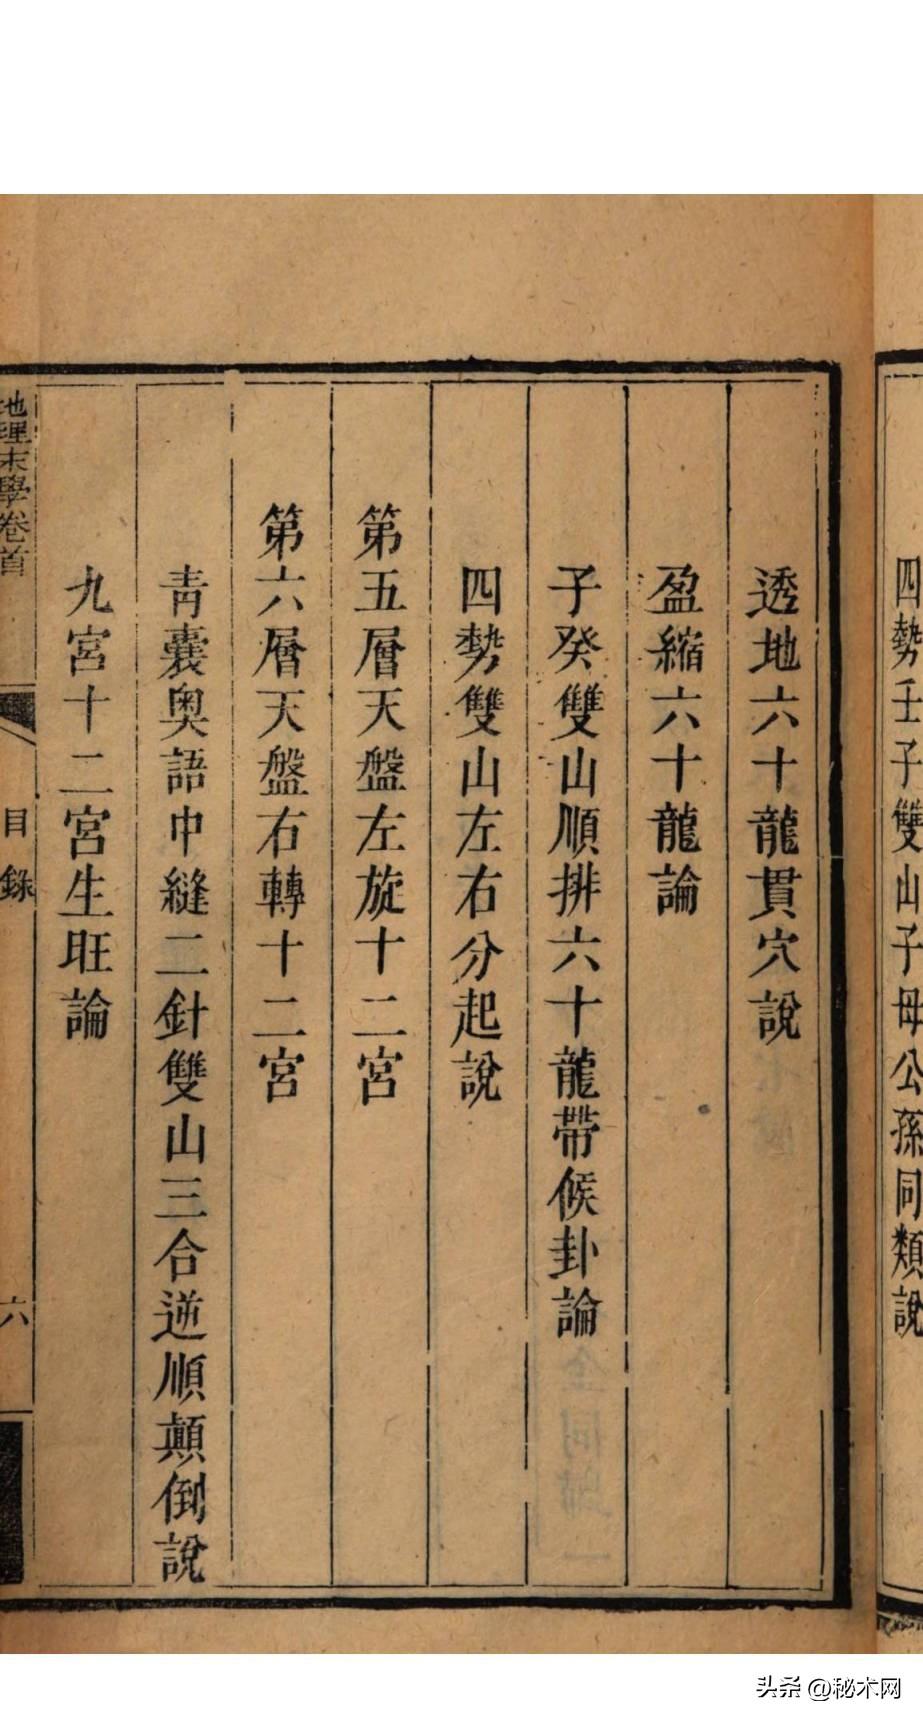 四勢壬子雙山子母公孫同類說
透地六十龍貫穴說
盈縮六十龍論
子癸雙山順排六十龍帶候卦論
四勢雙山左右分起說
第五層天盤左旋十二宮
第六層天盤右轉十二宮
青囊奧語中縫二針雙山三合逆順顛倒說
九宮十二宮生旺論
地理末學卷首
目錄
六
头条 @秘术网